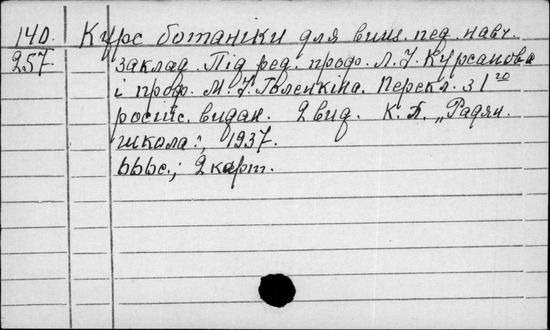 140. Курс ботаніки для вищ. пед. навч.
257. заклад. Під ред. проф. Л.І. Курсанова
і проф. М.І. Голенкіна. Перекл. з 1го
російс. видан. 2 вид. К.Х. „Радян.
школа", 1937.
666с.; 2 карт.